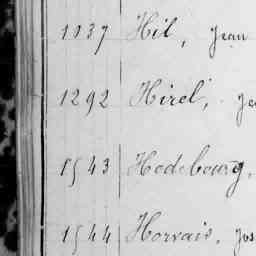 1037 Hil, Jean
1292 Hirel, Je
1543 Hedebourg,
1544 Horvais, Jos